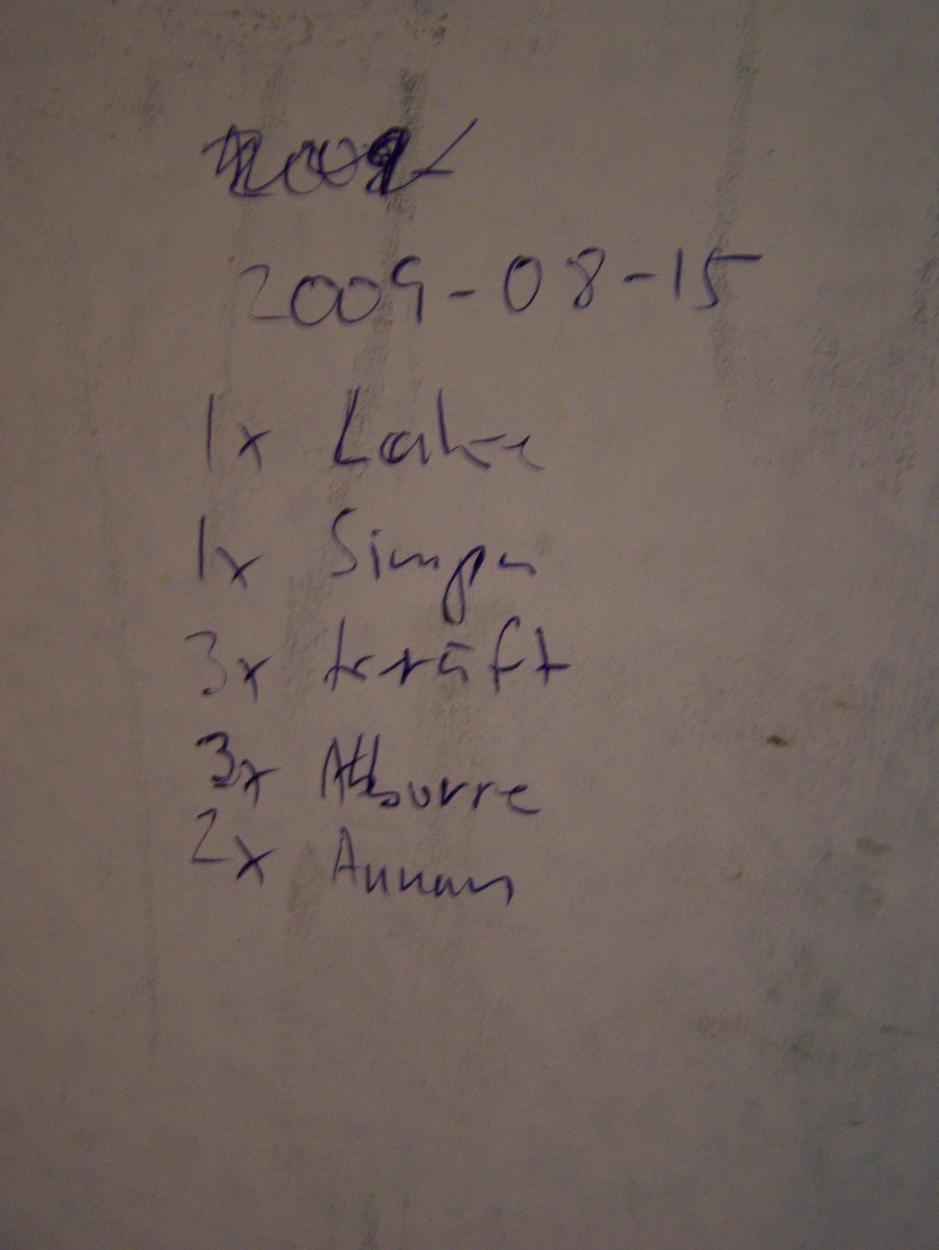 2009-08-15
1x Lake
1x Simpa
3x kräft
3x Abborre
2x Annan